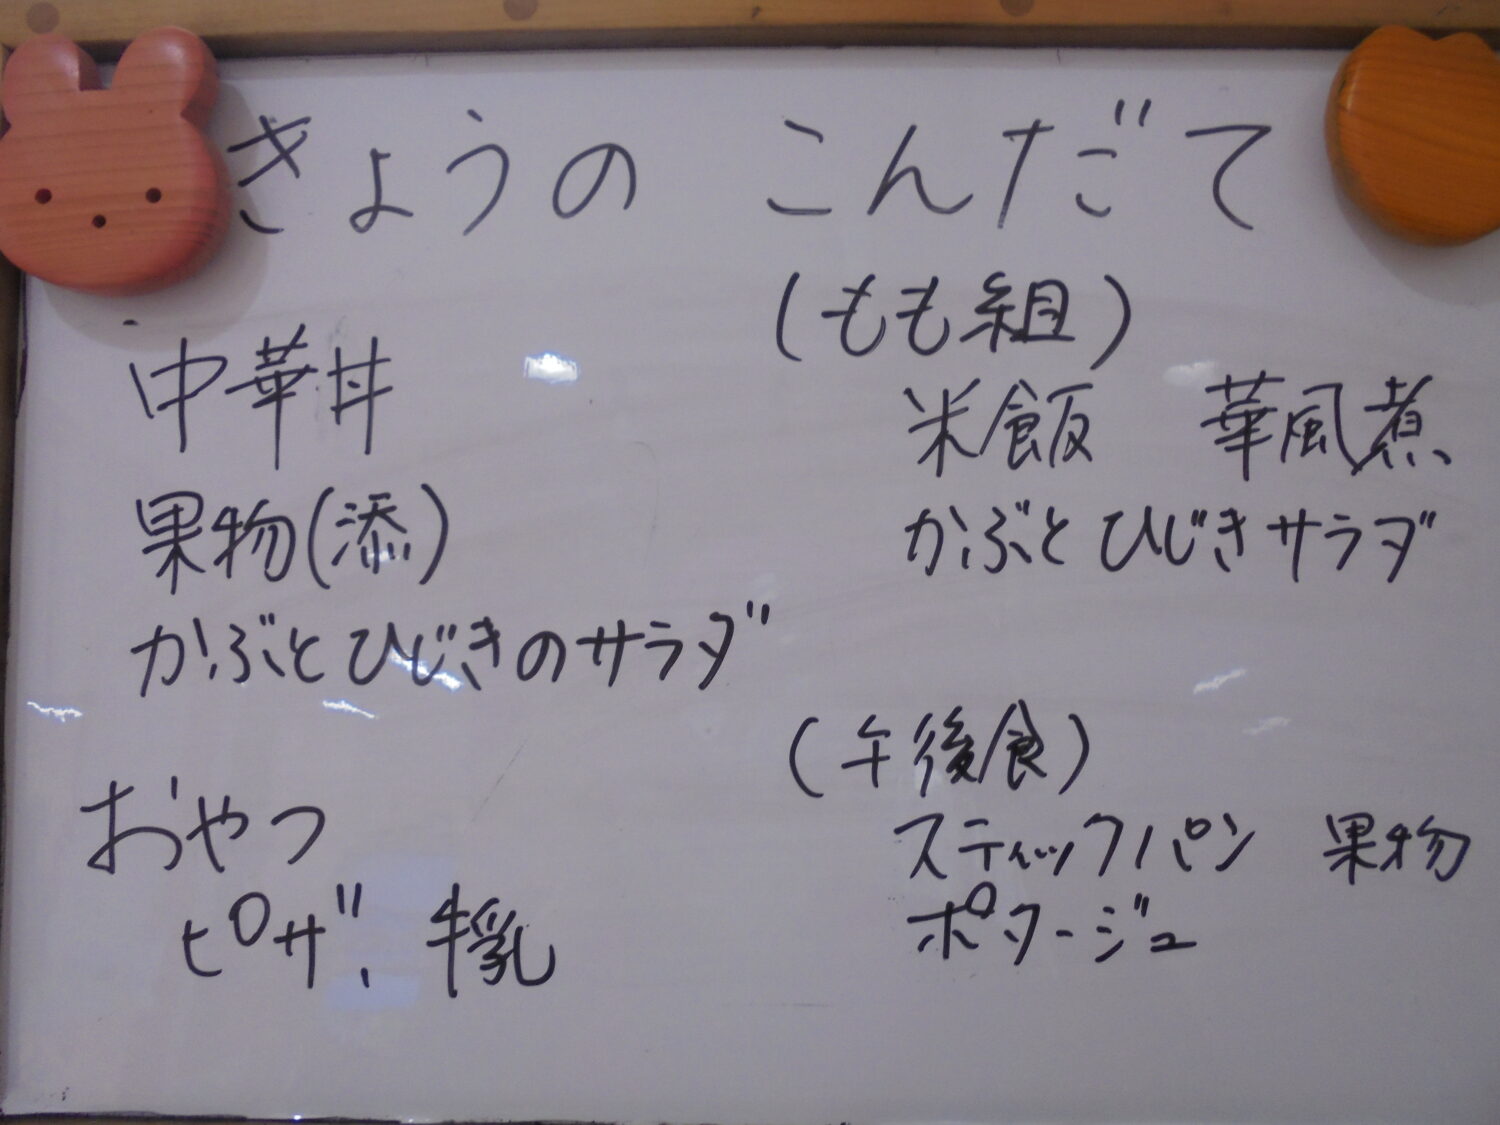 きょうの こんだて
中華丼
果物(添)
かぶとひじきのサラダ
おやつ
ピザ、牛乳
(もも組)
米飯 華風煮
かぶとひじきサラダ
(午後食)
スティックパン 果物
ポタージュ